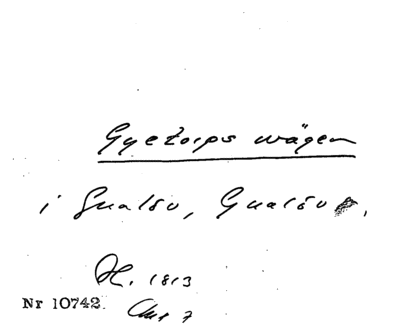 Gyetorps vägen
i Gualöv, Gualöv,
H. 1813
Nr 10742.